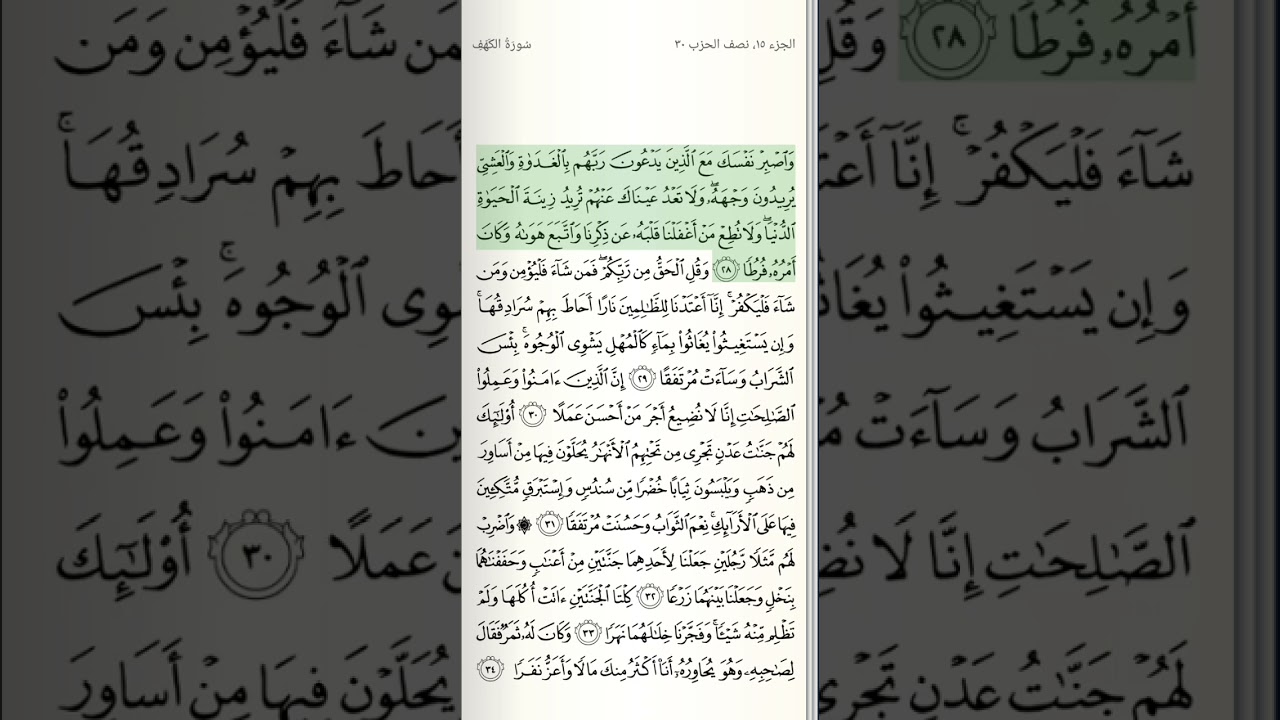 الجزء ١٥، نصف الحزب ٣٠
سُورَةُ الكَهۡفِ
وَٱصۡبِرۡ نَفۡسَكَ مَعَ ٱلَّذِينَ يَدۡعُونَ رَبَّهُم بِٱلۡغَدَوٰةِ وَٱلۡعَشِيِّ
يُرِيدُونَ وَجۡهَهُۥۖ وَلَا تَعۡدُ عَيۡنَاكَ عَنۡهُمۡ تُرِيدُ زِينَةَ ٱلۡحَيَوٰةِ
ٱلدُّنۡيَاۖ وَلَا تُطِعۡ مَنۡ أَغۡفَلۡنَا قَلۡبَهُۥ عَن ذِكۡرِنَا وَٱتَّبَعَ هَوَىٰهُ وَكَانَ
أَمۡرُهُۥ فُرُطٗا ٢٨ وَقُلِ ٱلۡحَقُّ مِن رَّبِّكُمۡۖ فَمَن شَآءَ فَلۡيُؤۡمِن وَمَن
شَآءَ فَلۡيَكۡفُرۡۚ إِنَّآ أَعۡتَدۡنَا لِلظَّٰلِمِينَ نَارًا أَحَاطَ بِهِمۡ سُرَادِقُهَاۚ
وَإِن يَسۡتَغِيثُواْ يُغَاثُواْ بِمَآءٖ كَٱلۡمُهۡلِ يَشۡوِي ٱلۡوُجُوهَۚ بِئۡسَ
ٱلشَّرَابُ وَسَآءَتۡ مُرۡتَفَقًا ٢٩ إِنَّ ٱلَّذِينَ ءَامَنُواْ وَعَمِلُواْ
ٱلصَّٰلِحَٰتِ إِنَّا لَا نُضِيعُ أَجۡرَ مَنۡ أَحۡسَنَ عَمَلًا ٣٠ أُوْلَٰٓئِكَ
لَهُمۡ جَنَّٰتُ عَدۡنٖ تَجۡرِي مِن تَحۡتِهِمُ ٱلۡأَنۡهَٰرُ يُحَلَّوۡنَ فِيهَا مِنۡ أَسَاوِرَ
مِن ذَهَبٖ وَيَلۡبَسُونَ ثِيَابًا خُضۡرٗا مِّن سُندُسٖ وَإِسۡتَبۡرَقٖ مُّتَّكِـِٔينَ
فِيهَا عَلَى ٱلۡأَرَآئِكِۚ نِعۡمَ ٱلثَّوَابُ وَحَسُنَتۡ مُرۡتَفَقٗا ٣١ ۞ وَٱضۡرِبۡ
لَهُم مَّثَلٗا رَّجُلَيۡنِ جَعَلۡنَا لِأَحَدِهِمَا جَنَّتَيۡنِ مِنۡ أَعۡنَٰبٖ وَحَفَفۡنَٰهُمَا
بِنَخۡلٖ وَجَعَلۡنَا بَيۡنَهُمَا زَرۡعٗا ٣٢ كِلۡتَا ٱلۡجَنَّتَيۡنِ ءَاتَتۡ أُكُلَهَا وَلَمۡ
تَظۡلِم مِّنۡهُ شَيۡـٔٗاۚ وَفَجَّرۡنَا خِلَٰلَهُمَا نَهَرٗا ٣٣ وَكَانَ لَهُۥ ثَمَرٞ فَقَالَ
لِصَٰحِبِهِۦ وَهُوَ يُحَاوِرُهُۥٓ أَنَا۠ أَكۡثَرُ مِنكَ مَالٗا وَأَعَزُّ نَفَرٗا ٣٤